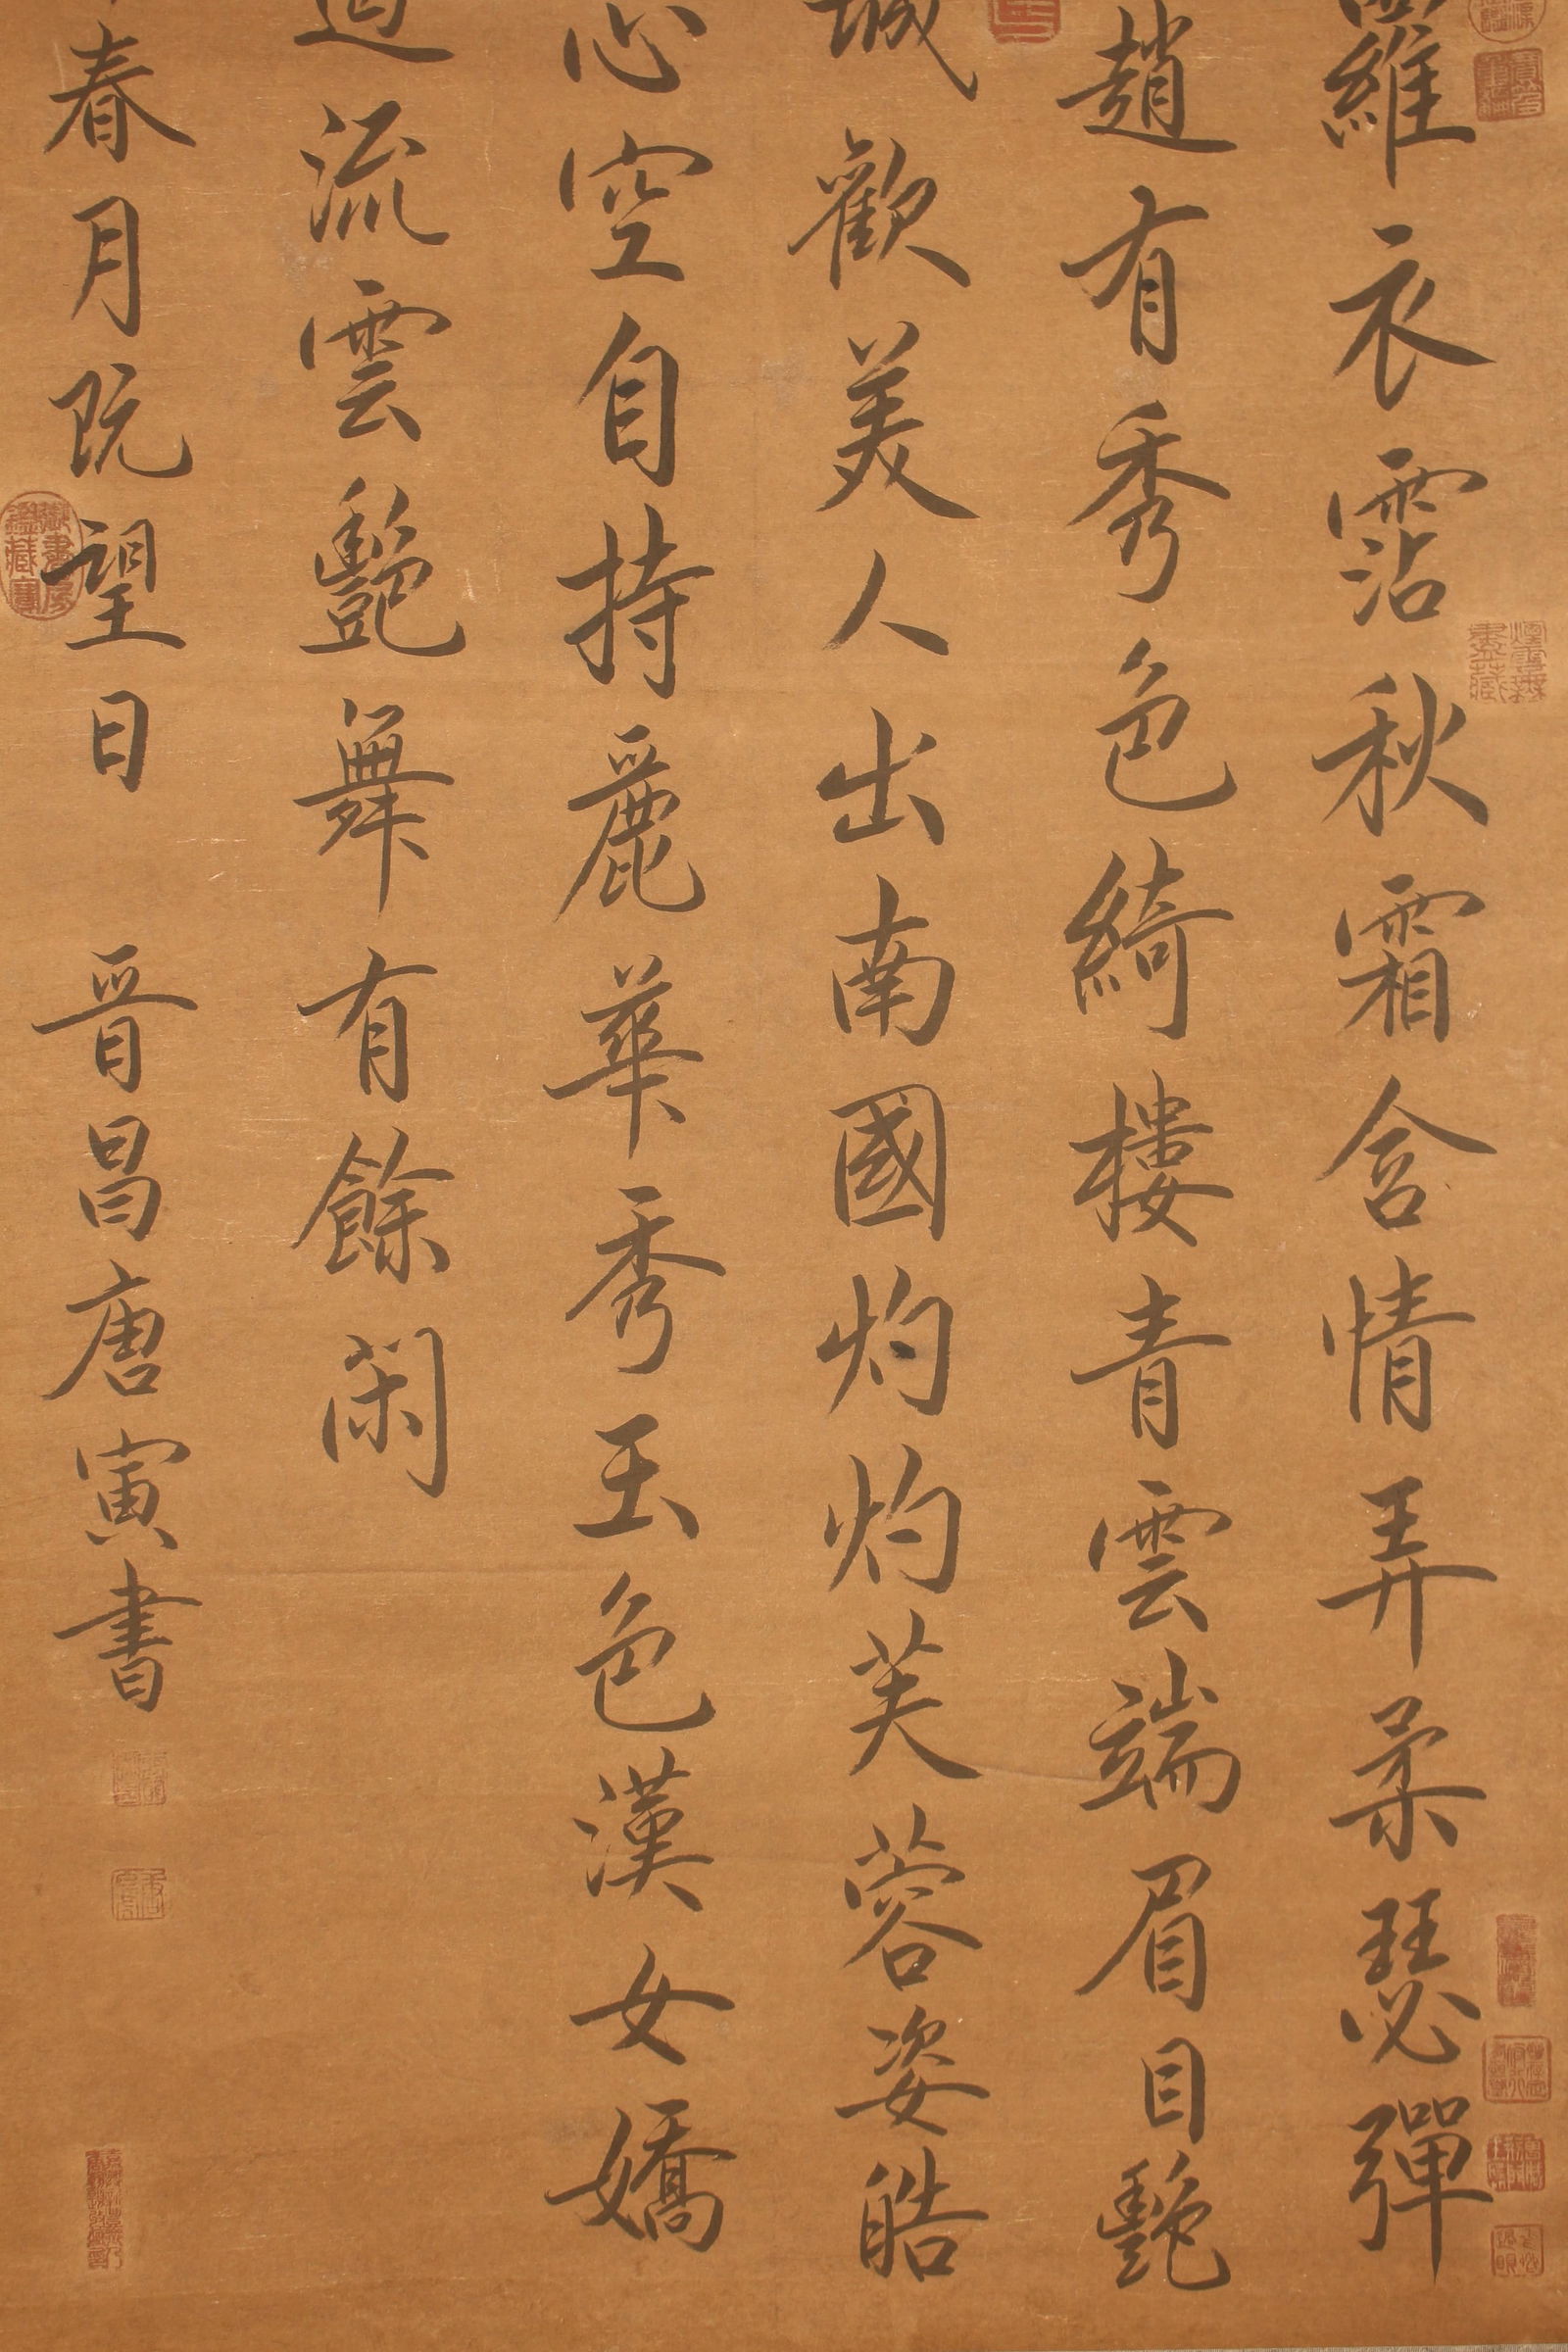 羅衣霑秋霜含情弄柔瑟彈
趙有秀色綺樓青雲端眉目艷
城歡美人出南國灼灼芙蓉姿皓
心空自持麗華秀玉色漢女嬌
過流雲艷舞有餘閑
春月既望日 晉昌唐寅書
御書房鑑藏寶